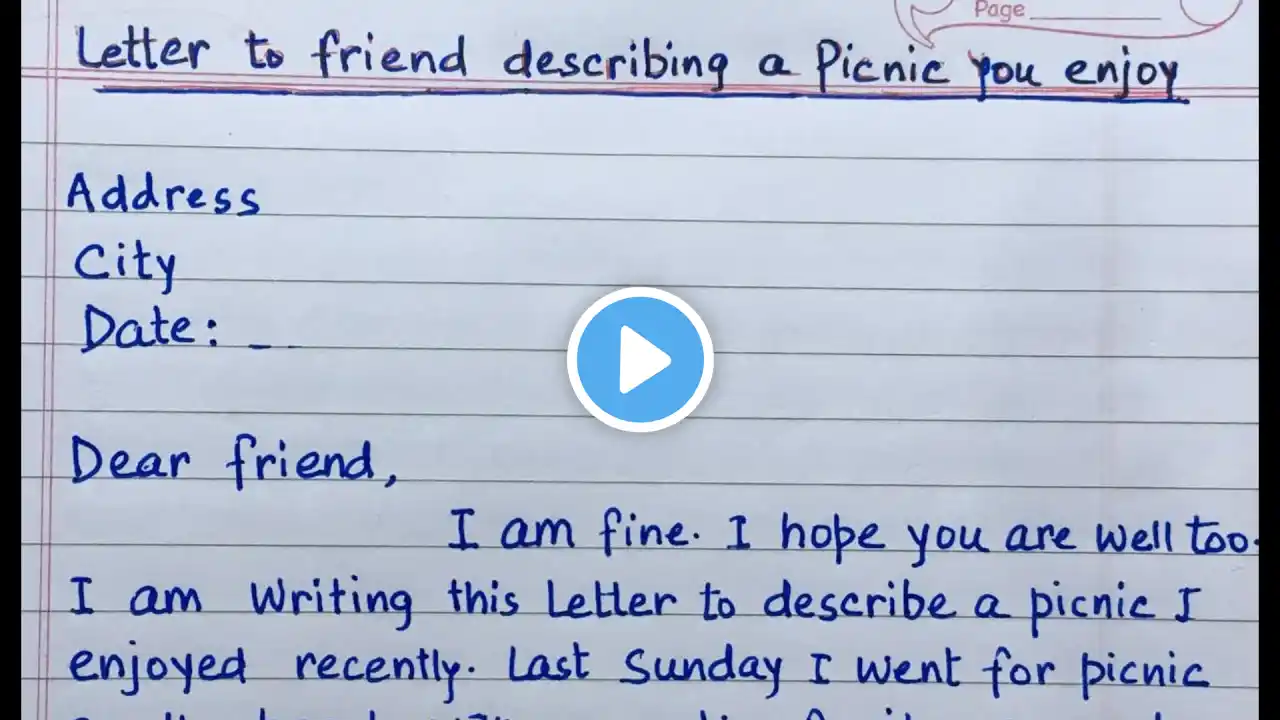 Page
Letter to friend describing a Picnic you enjoy
Address
City
Date: _ _
Dear friend,
I am fine. I hope you are well too.
I am writing this Letter to describe a picnic I
enjoyed recently. Last Sunday I went for picnic